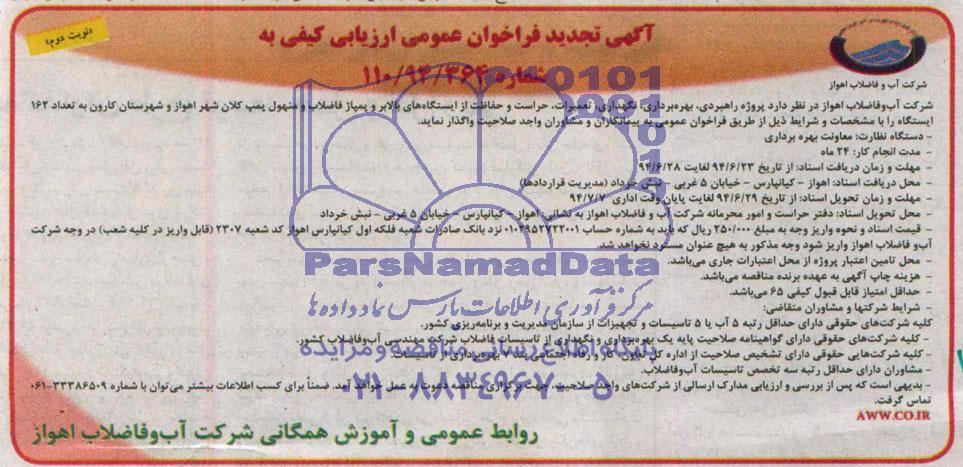 «نوبت دوم»
آگهی تجدید فراخوان عمومی ارزیابی کیفی به
شماره ۱۱۰/۹۴/۳۶۴
شرکت آب و فاضلاب اهواز
شرکت آب‌وفاضلاب اهواز در نظر دارد پروژه راهبردی، بهره‌برداری، نگهداری، تعمیرات، حراست و حفاظت از ایستگاه‌های بالابر و پمپاژ فاضلاب و منهول پمپ کلان شهر اهواز و شهرستان کارون به تعداد ۱۶۲
ایستگاه را با مشخصات و شرایط ذیل از طریق فراخوان عمومی به پیمانکاران و مشاوران واجد صلاحیت واگذار نماید.
- دستگاه نظارت: معاونت بهره برداری
- مدت انجام کار: ۲۴ ماه
- مهلت و زمان دریافت اسناد: از تاریخ ۹۴/۶/۲۳ لغایت ۹۴/۶/۲۸
- محل دریافت اسناد: اهواز - کیانپارس - خیابان ۵ غربی - نبش خرداد (مدیریت قراردادها)
- مهلت و زمان تحویل اسناد: از تاریخ ۹۴/۶/۲۹ لغایت پایان وقت اداری ۹۴/۷/۷
- محل تحویل اسناد: دفتر حراست و امور محرمانه شرکت آب و فاضلاب اهواز به نشانی: اهواز - کیانپارس - خیابان ۵ غربی - نبش خرداد
- قیمت اسناد و نحوه واریز وجه به مبلغ ۲۵۰/۰۰۰ ریال که باید به شماره حساب ۰۱۰۳۹۵۲۷۲۲۰۰۱ نزد بانک صادرات شعبه فلکه اول کیانپارس اهواز کد شعبه ۲۳۰۷ (قابل واریز در کلیه شعب) در وجه شرکت
آب‌و فاضلاب اهواز واریز شود وجه مذکور به هیچ عنوان مسترد نخواهد شد.
- محل تامین اعتبار پروژه از محل اعتبارات جاری می‌باشد.
- هزینه چاپ آگهی به عهده برنده مناقصه می‌باشد.
- حداقل امتیاز قابل قبول کیفی ۶۵ می‌باشد.
- شرایط شرکتها و مشاوران متقاضی:
کلیه شرکت‌های حقوقی دارای حداقل رتبه ۵ آب یا ۵ تاسیسات و تجهیزات از سازمان مدیریت و برنامه‌ریزی کشور.
- کلیه شرکت‌های حقوقی دارای گواهینامه صلاحیت پایه یک بهره‌برداری و نگهداری از تاسیسات فاضلاب شرکت مهندسی آب‌وفاضلاب کشور.
- کلیه شرکت‌هایی حقوقی دارای تشخیص صلاحیت از اداره کل تعاون، کار و رفاه اجتماعی بند ۷ بهره‌برداری از تاسیسات.
- مشاوران دارای حداقل رتبه سه تخصص تاسیسات آب‌وفاضلاب.
- بدیهی است که پس از بررسی و ارزیابی مدارک ارسالی از شرکت‌های واجد صلاحیت، جهت برگزاری مناقصه دعوت به عمل خواهد آمد. ضمناً برای کسب اطلاعات بیشتر می‌توان با شماره ۰۶۱-۳۳۳۸۶۵۰۹
تماس گرفت.
AWW.CO.IR
روابط عمومی و آموزش همگانی شرکت آب‌وفاضلاب اهواز
ParsNamadData
مرکز فرآوری اطلاعات پارس نماد داده‌ها
۰۲۱-۸۸۳۴۹۶۷۰-۵